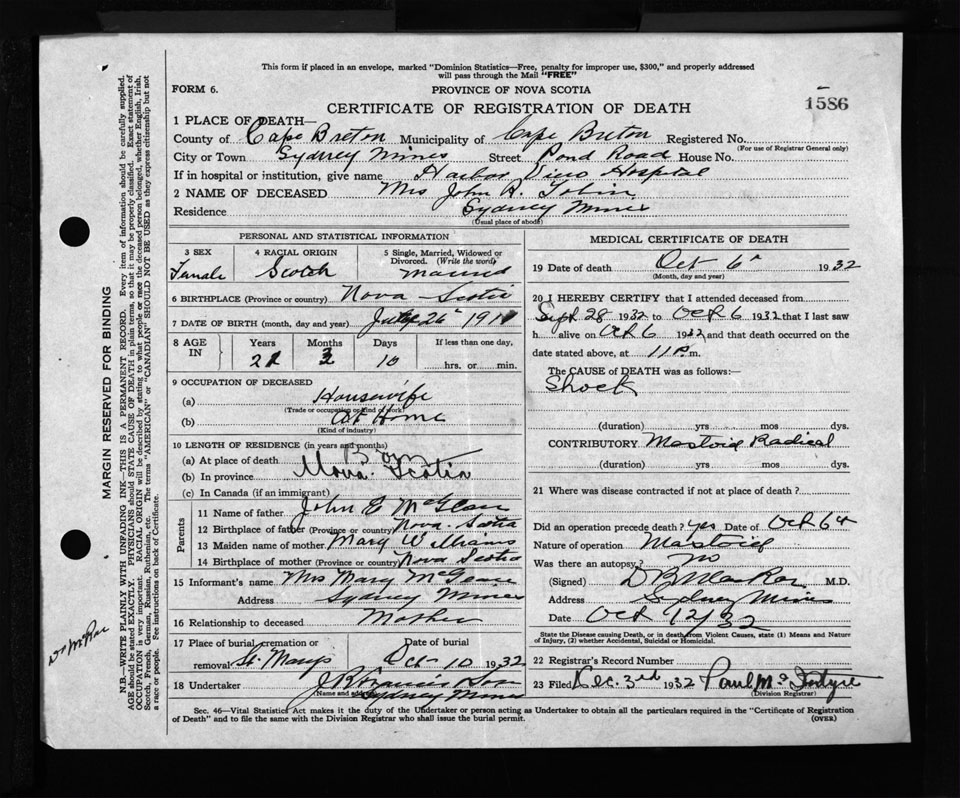 This form if placed in an envelope, marked "Dominion Statistics—Free, penalty for improper use, $300," and properly addressed
will pass through the Mail "FREE"
FORM 6.
PROVINCE OF NOVA SCOTIA
1586
CERTIFICATE OF REGISTRATION OF DEATH
1 PLACE OF DEATH—
County of Cape Breton Municipality of Cape Breton Registered No.
(For use of Registrar General only)
City or Town Sydney Mines Street Pond Road House No.
If in hospital or institution, give name Harbor View Hospital
2 NAME OF DECEASED Mrs John A. Tobin
Residence Sydney Mines
(Usual place of abode)
PERSONAL AND STATISTICAL INFORMATION
3 SEX
Female
4 RACIAL ORIGIN
Scotch
5 Single, Married, Widowed or
Divorced. (Write the word)
married
6 BIRTHPLACE (Province or country) Nova Scotia
7 DATE OF BIRTH (month, day and year) 26" 1911
8 AGE
IN
Years
21
Months
Days
10
If less than one day,
hrs. or min.
9 OCCUPATION OF DECEASED
(a) Housewife
(Trade or occupation or kind of work)
(b) At Home
(Kind of industry)
10 LENGTH OF RESIDENCE (in years and months)
(a) At place of death Born
(b) In province Nova Scotia
(c) In Canada (if an immigrant)
Parents
11 Name of father John E McGean
12 Birthplace of father (Province or country) Nova Scotia
13 Maiden name of mother Mary Williams
14 Birthplace of mother (Province or country) Nova Scotia
15 Informant's name Mrs Mary McGean
Address Sydney Mines
16 Relationship to deceased Mother
17 Place of burial, cremation or
removal St. Marys
Date of burial
Oct 10 1932
18 Undertaker
(Name and address)
Sydney Mines
MEDICAL CERTIFICATE OF DEATH
19 Date of death Oct 6" 1932
(Month, day and year)
20 I HEREBY CERTIFY that I attended deceased from
Sept 28 1932 to Oct 6 1932 that I last saw
h alive on Oct 6 1932 and that death occurred on the
date stated above, at 11 P m.
The CAUSE of DEATH was as follows:—
Shock
(duration) yrs mos dys.
CONTRIBUTORY Mastoid Radical
(duration) yrs mos dys.
21 Where was disease contracted if not at place of death?
Did an operation precede death? yes Date of Oct 6th
Nature of operation Mastoid
Was there an autopsy? no
(Signed) M.D.
Address Sydney Mines
Date Oct 12/32
State the Disease causing Death, or in death from Violent Causes, state (1) Means and Nature
of Injury, (2) whether Accidental, Suicidal or Homicidal.
22 Registrar's Record Number
23 Filed Dec. 3rd 1932 Paul McIntyre
(Division Registrar)
Sec. 46—Vital Statistics Act makes it the duty of the Undertaker or person acting as Undertaker to obtain all the particulars required in the "Certificate of Registration
of Death" and to file the same with the Division Registrar who shall issue the burial permit.
(OVER)
MARGIN RESERVED FOR BINDING
N.B.—WRITE PLAINLY WITH UNFADING INK—THIS IS A PERMANENT RECORD. Every item of information should be carefully supplied.
AGE should be stated EXACTLY. PHYSICIANS should STATE CAUSE OF DEATH in plain terms, so that it may be properly classified. Exact statement of
OCCUPATION is very important. RACIAL ORIGIN will be described by stating to what people or race the deceased person belonged, whether English, Irish,
Scotch, French, German, Russian, Ruthenian, etc. The terms "AMERICAN" or "CANADIAN" SHOULD NOT BE USED as they express citizenship but not
a race or people. See instructions on back of Certificate.
Dr McRae